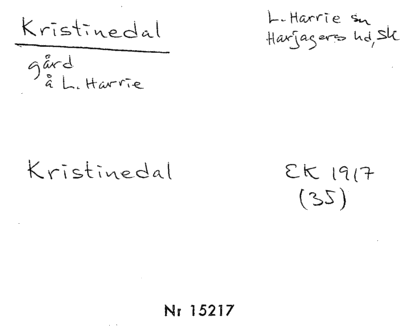 Kristinedal
L. Harrie sn
Harjagers hd, Sk
gård
å L. Harrie
Kristinedal
EK 1917
(35)
Nr 15217